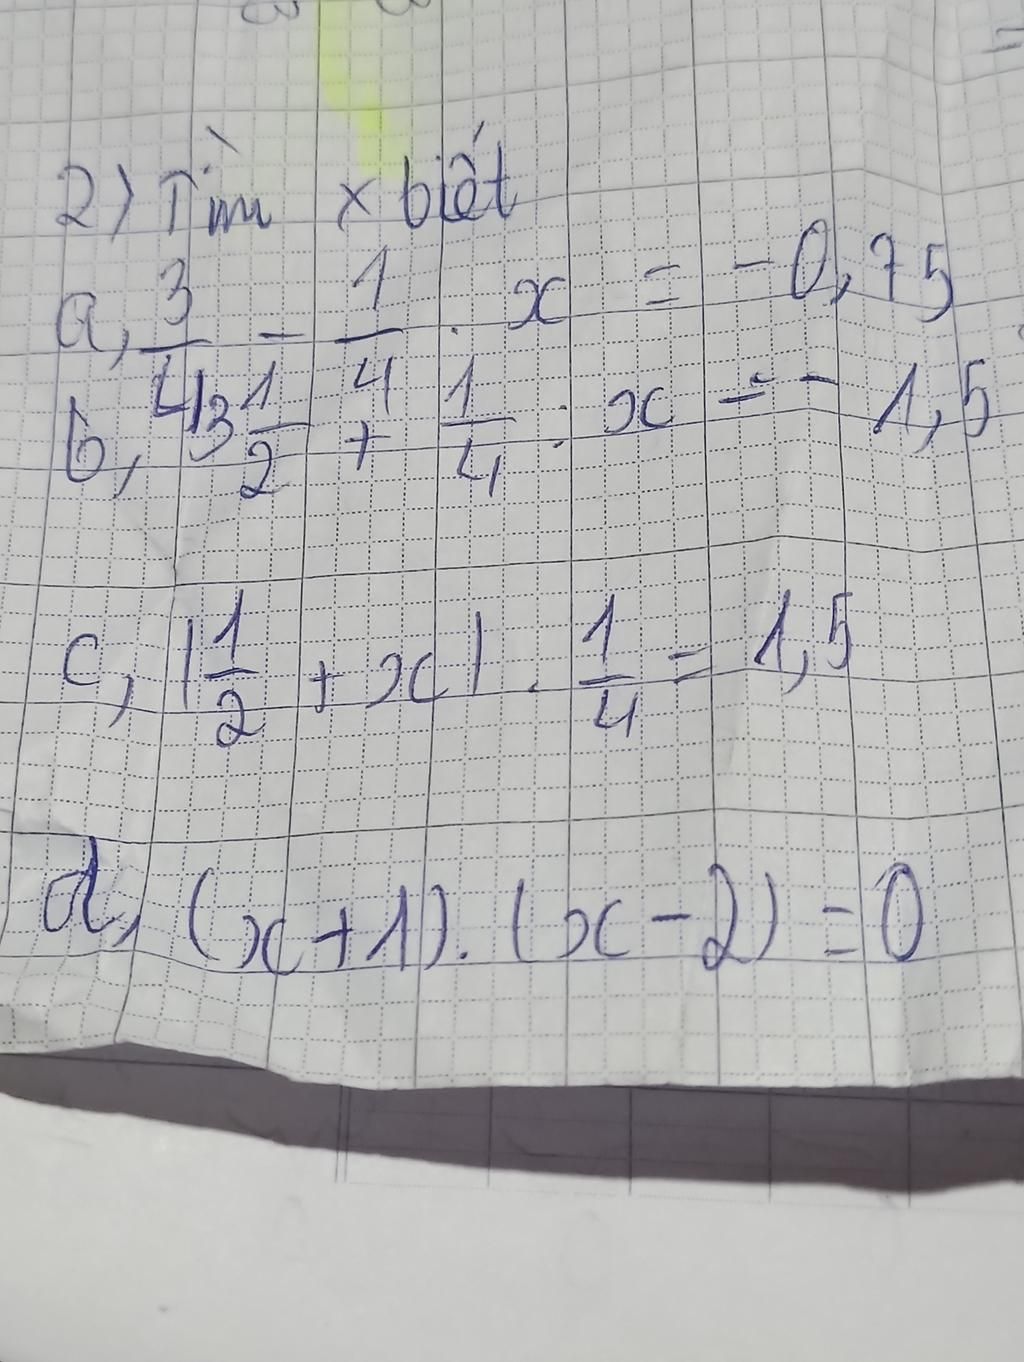 2) Tìm x biết
a, 3/4 - 1/4 . x = -0,75
b, 3 1/2 + 1/4 : x = - 1,5
c, |1/2 + x| . 1/4 = 1,5
d, (x+1).(x-2)=0